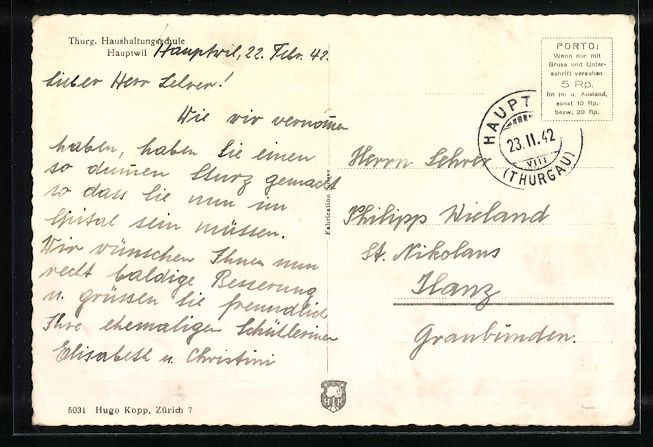 Thurg. Haushaltungsschule
Hauptwil
Hauptwil, 22. Febr. 42.
Lieber Herr Lehrer!
Wie wir vernommen
haben, haben Sie einen
so dummen Sturz gemacht
so dass Sie nun im
Spital sein müssen.
Wir wünschen Ihnen nun
recht baldige Besserung
u. grüssen Sie freundlich
Ihre ehemaligen Schüllerinen
Elisabeth u. Christini
5031 Hugo Kopp, Zürich 7
Fabrication Suisse
HK
PORTO:
Wenn nur mit
Gruss und Unter-
schrift versehen
5 Rp.
Im In- u. Ausland,
sonst 10 Rp.
bezw. 20 Rp.
HAUPT
23.II.42
VIII
(THURGAU)
Herrn Lehrer
Philipp Wieland
St. Nikolaus
Ilanz
Graubünden.